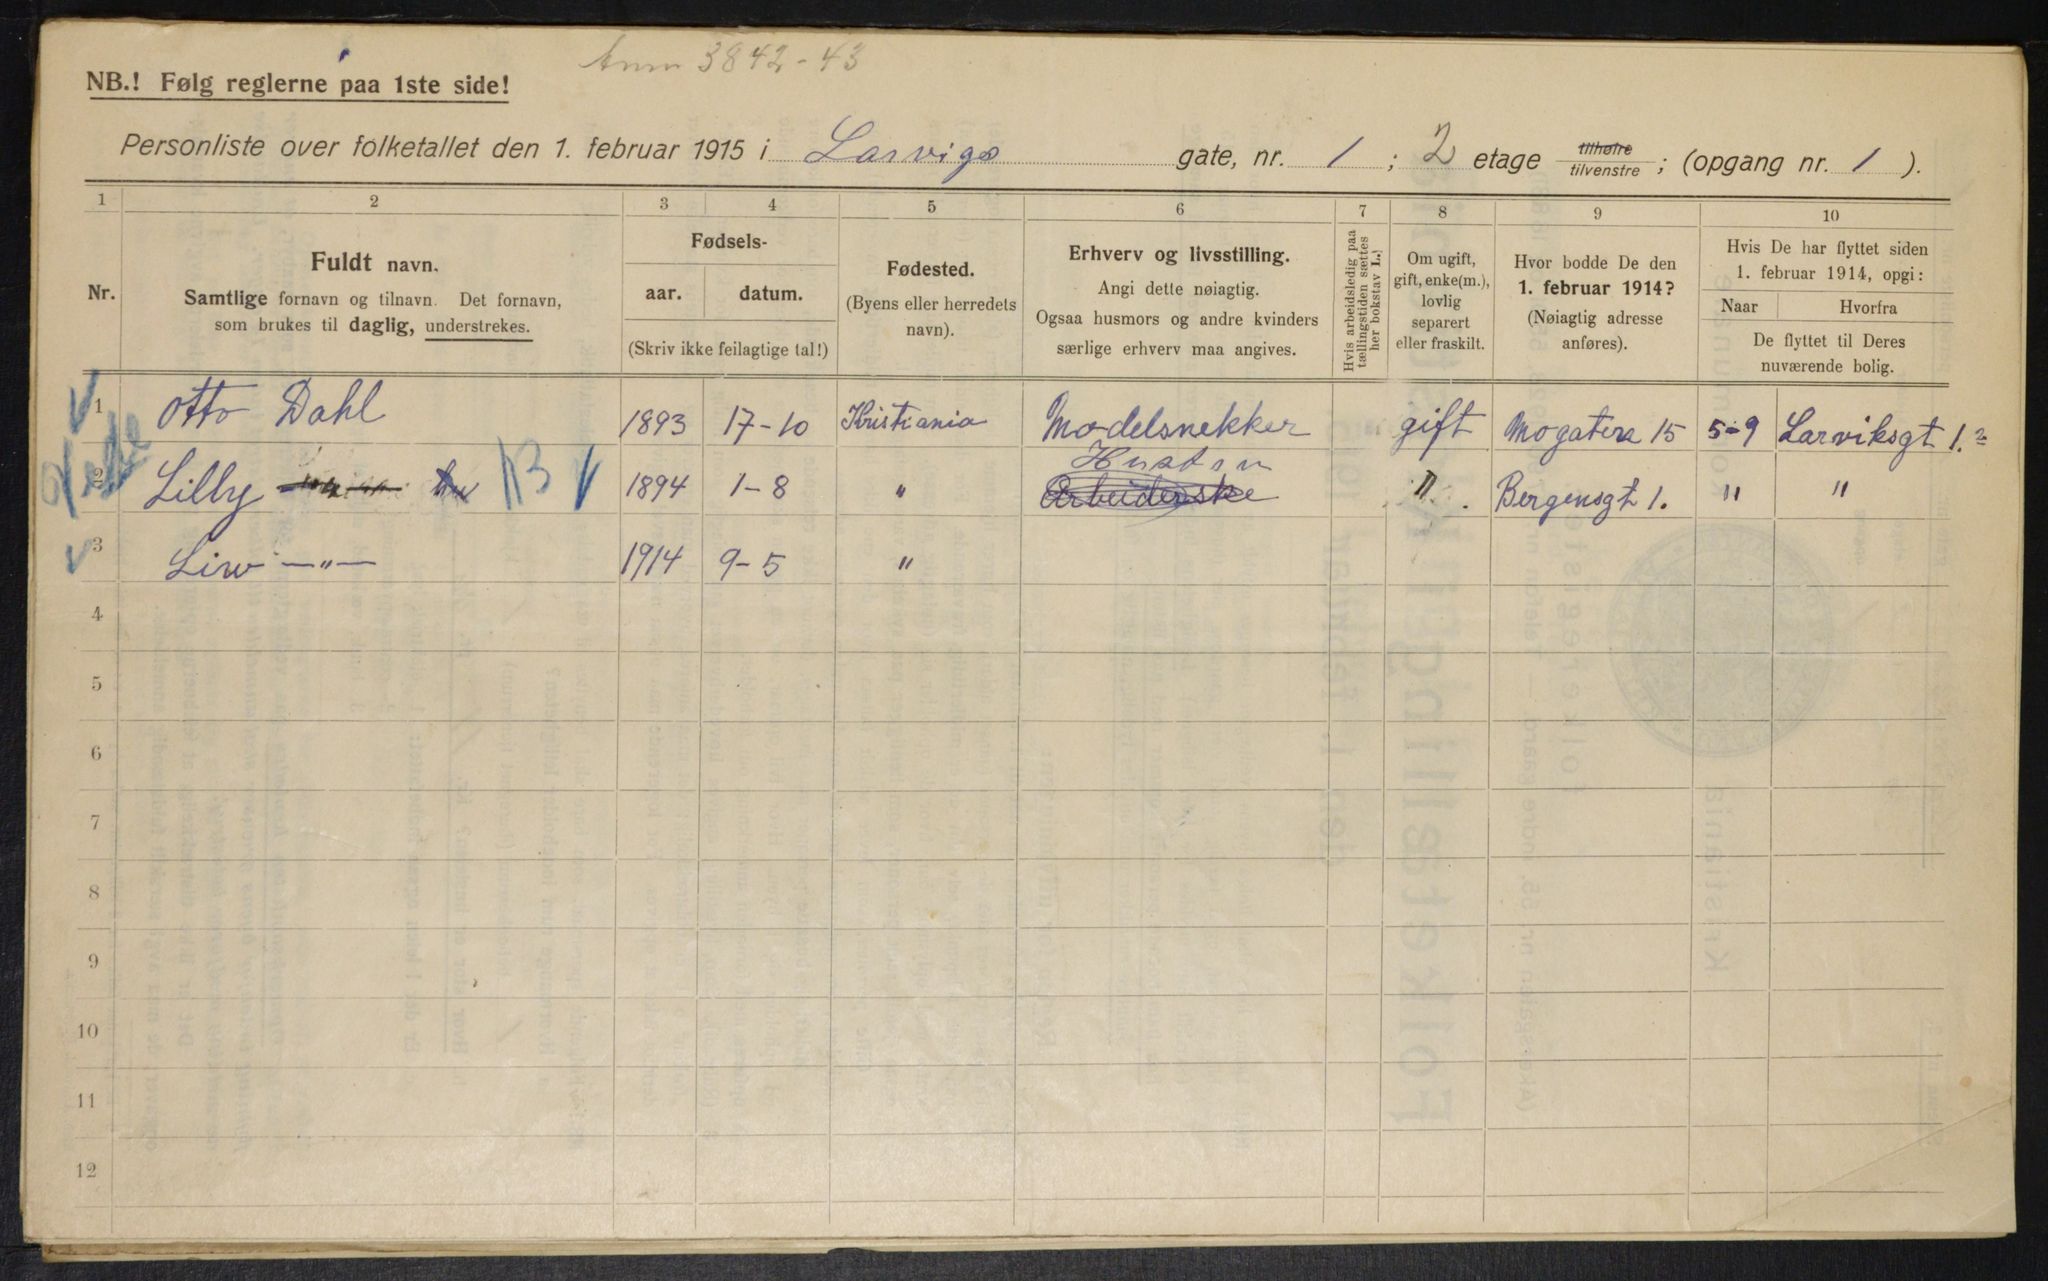 3842-43
NB.! Følg reglerne paa 1ste side!
Personliste over folketallet den 1. februar 1915 i Larvigs gate, nr. 1 ; 2 etage tilhøire tilvenstre ; (opgang nr. 1 ).
1 2 3 4 5 6 7 8 9 10
Nr.
Fuldt navn.
Samtlige fornavn og tilnavn. Det fornavn,
som brukes til daglig, understrekes.
Fødsels-
aar. datum.
(Skriv ikke feilagtige tal!)
Fødested.
(Byens eller herredets
navn).
Erhverv og livsstilling.
Angi dette nøiagtig.
Ogsaa husmors og andre kvinders
særlige erhverv maa angives.
Hvis arbeidsledig paa
tællingstiden sættes
her bokstav L.!
Om ugift,
gift, enke(m.),
lovlig
separert
eller fraskilt.
Hvor bodde De den
1. februar 1914?
(Nøiagtig adresse
anføres).
Hvis De har flyttet siden
1. februar 1914, opgi:
Naar Hvorfra
De flyttet til Deres
nuværende bolig.
1 Otto Dahl 1893 17-10 Kristiania Modelsnekker gift Mogatera 15 5-9 Larviksgt 1.2
Hustru
2 Lilly 1894 1-8 " Arbeiderske " Bergensgt 1. " "
3 Liw —"— 1914 9-5 "
4
5
6
7
8
9
10
11
12